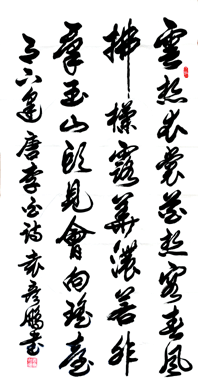 雲想衣裳花想容春風
拂檻露華濃若非
羣玉山頭見會向瑤臺
月下逢 唐李白詩 袁彦鵬書